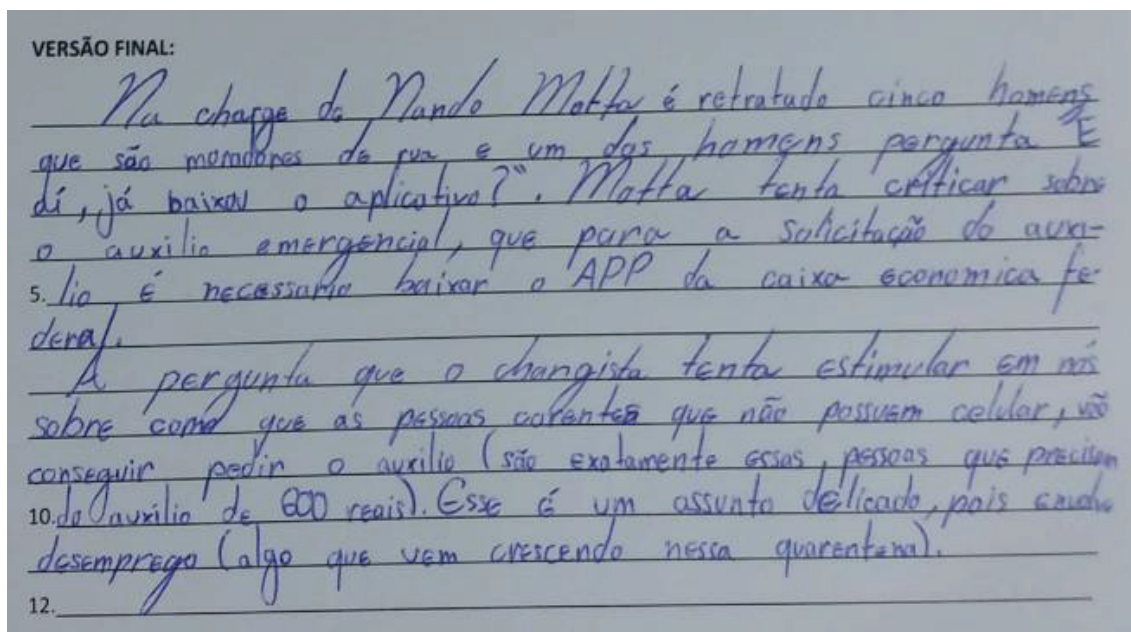 VERSÃO FINAL:
Na charge do Nando Motta é retratado cinco homens
que são moradores de rua, e um dos homens pergunta "E
dí, já baixou o aplicativo?". Motta tenta criticar sobre
o auxilio emergencial, que para a solicitação do auxi-
5. lio é necessario baixar o APP da caixa economica fe-
deral.
A pergunta que o chargista tenta estimular em nós
sobre como que as pessoas carentes que não possuem celular, vão
conseguir pedir o auxilio (são exatamente essas pessoas que precisam
10. do auxilio de 600 reais). Esse é um assunto delicado, pois envolve
desemprego (algo que vem crescendo nessa quarentena).
12.